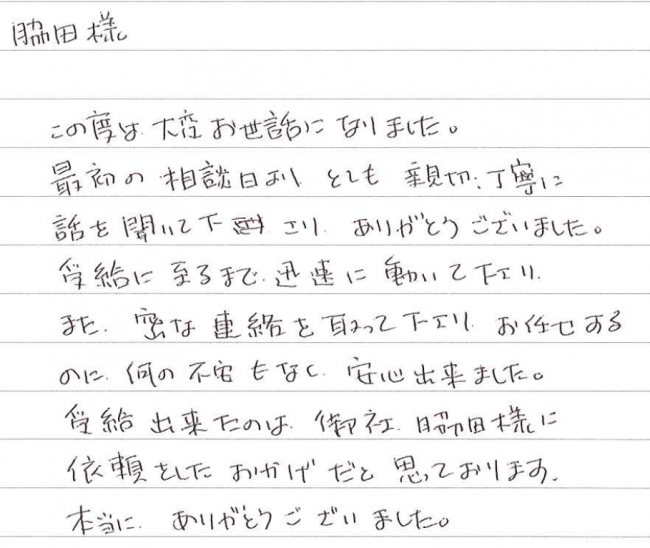 脇田様
この度は大変お世話になりました。
最初の相談日より とても 親切、丁寧に
話を聞いて下さり ありがとうございました。
受給に至るまで 迅速に動いて下さり
また、密な連絡を取って下さり お任せする
のに、何の不安もなく、安心出来ました。
受給出来たのは、御社、脇田様に
依頼をしたおかげだと思っております。
本当に、ありがとうございました。